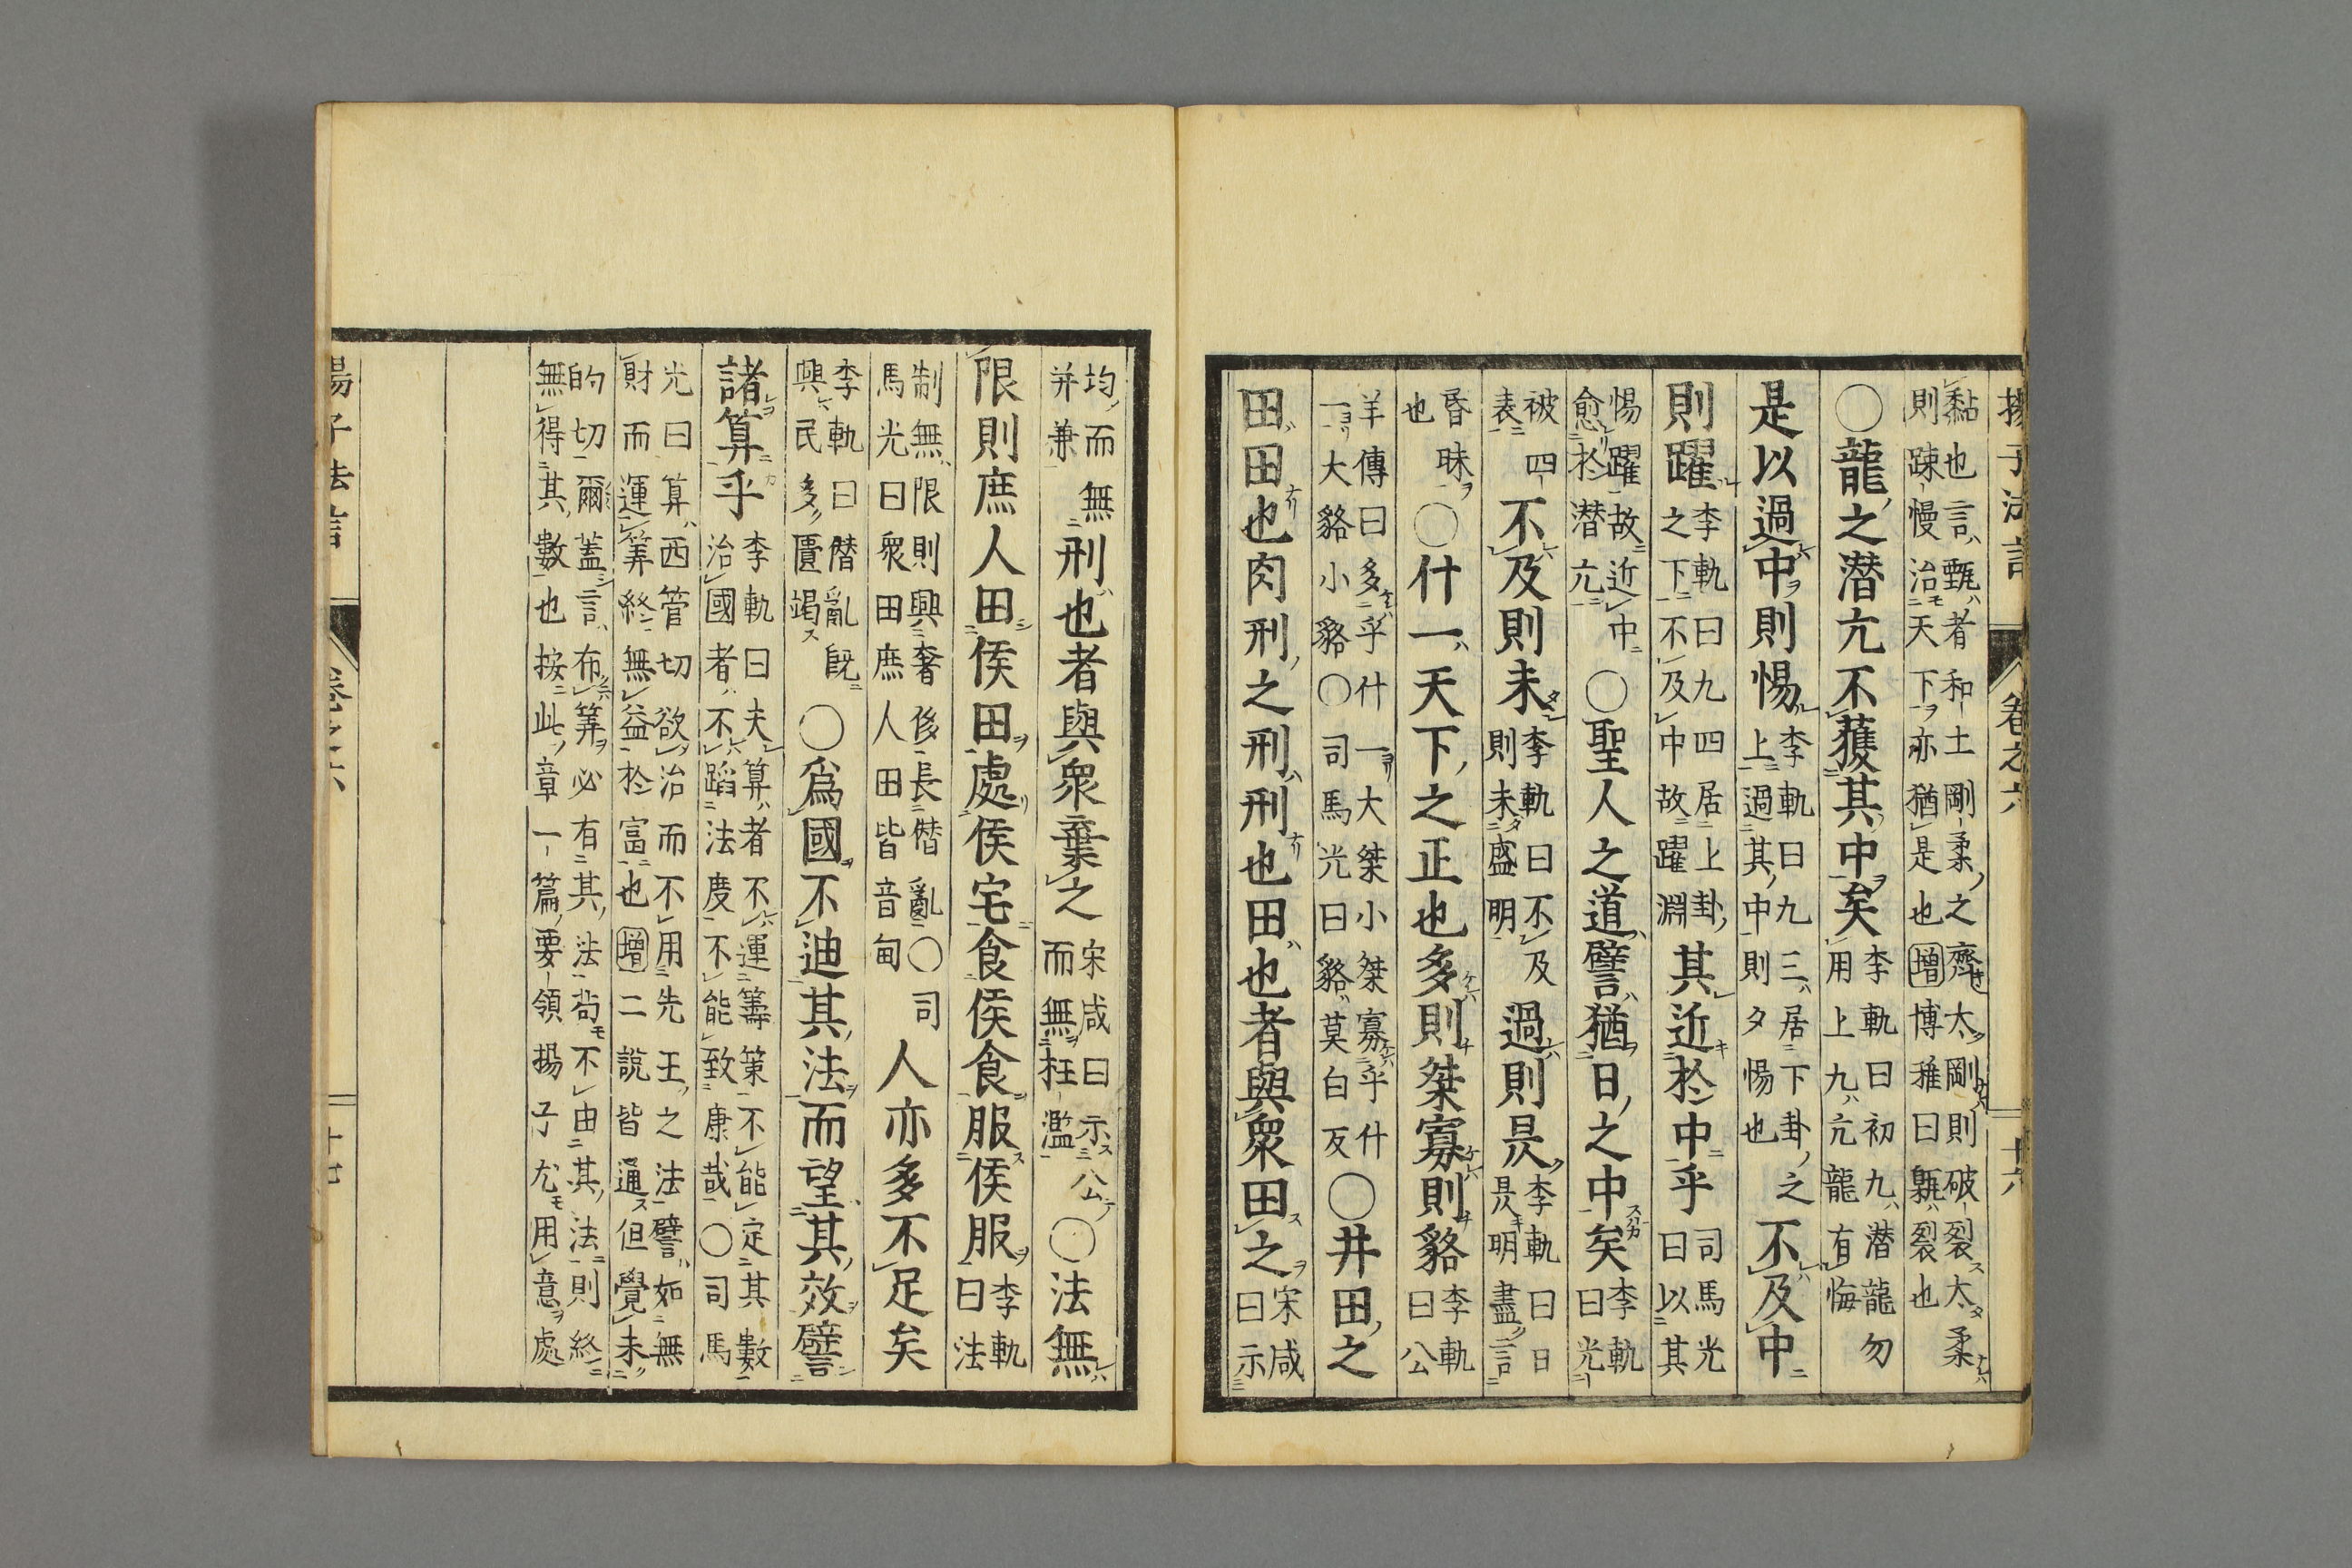 揚子法言 卷之六 十六
黏也言甄者和土剛柔之齊太剛則破裂太柔
則踈慢治天下亦猶是也增博雅曰甈裂也
○龍之潛亢不獲其中矣李軌曰初九潛龍勿
用上九亢龍有悔
是以過中則惕李軌曰九三居下卦之
上過其中則夕惕也不及中
則躍李軌曰九四居上卦
之下不及中故躍淵其近於中乎司馬光
曰以其
惕躍故近中
愈於潛亢○聖人之道譬猶日之中矣李軌
曰光
被四
表不及則未李軌曰不及
則未盛明過則昃李軌曰日
昃明盡言
昏昧
也○什一天下之正也多則桀寡則貉李軌
曰公
羊傳曰多乎什一大桀小桀寡乎什
一大貉小貉○司馬光曰貉莫白反○井田之
田田也肉刑之刑刑也田也者與衆田之宋咸
曰示
均而無
并兼刑也者與衆棄之宋咸曰示公
而無枉濫○法無
限則庶人田侯田處侯宅食侯食服侯服李軌
曰法
制無限則興奢侈長僭亂○司
馬光曰衆田庶人田皆音甸人亦多不足矣
李軌曰僭亂既
興民多匱竭○爲國不迪其法而望其效譬
諸算乎李軌曰夫算者不運籌策不能定其數
治國者不蹈法度不能致康哉○司馬
光曰算西管切欲治而不用先王之法譬如無
財而運筭終無益於富也增二說皆通但覺未
的切爾蓋言布筭必有其法茍不由其法則終
無得其數也按此章一篇要領揚子尤用意處